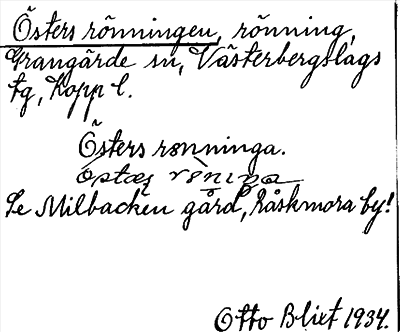 Östers rönningen, rönning,
Grangärde sn, Västerbergslags
tg, Kopp l.
Östers rønninga.
See Milbacken gård, Råskmora by!
Otto Blixt 1934.